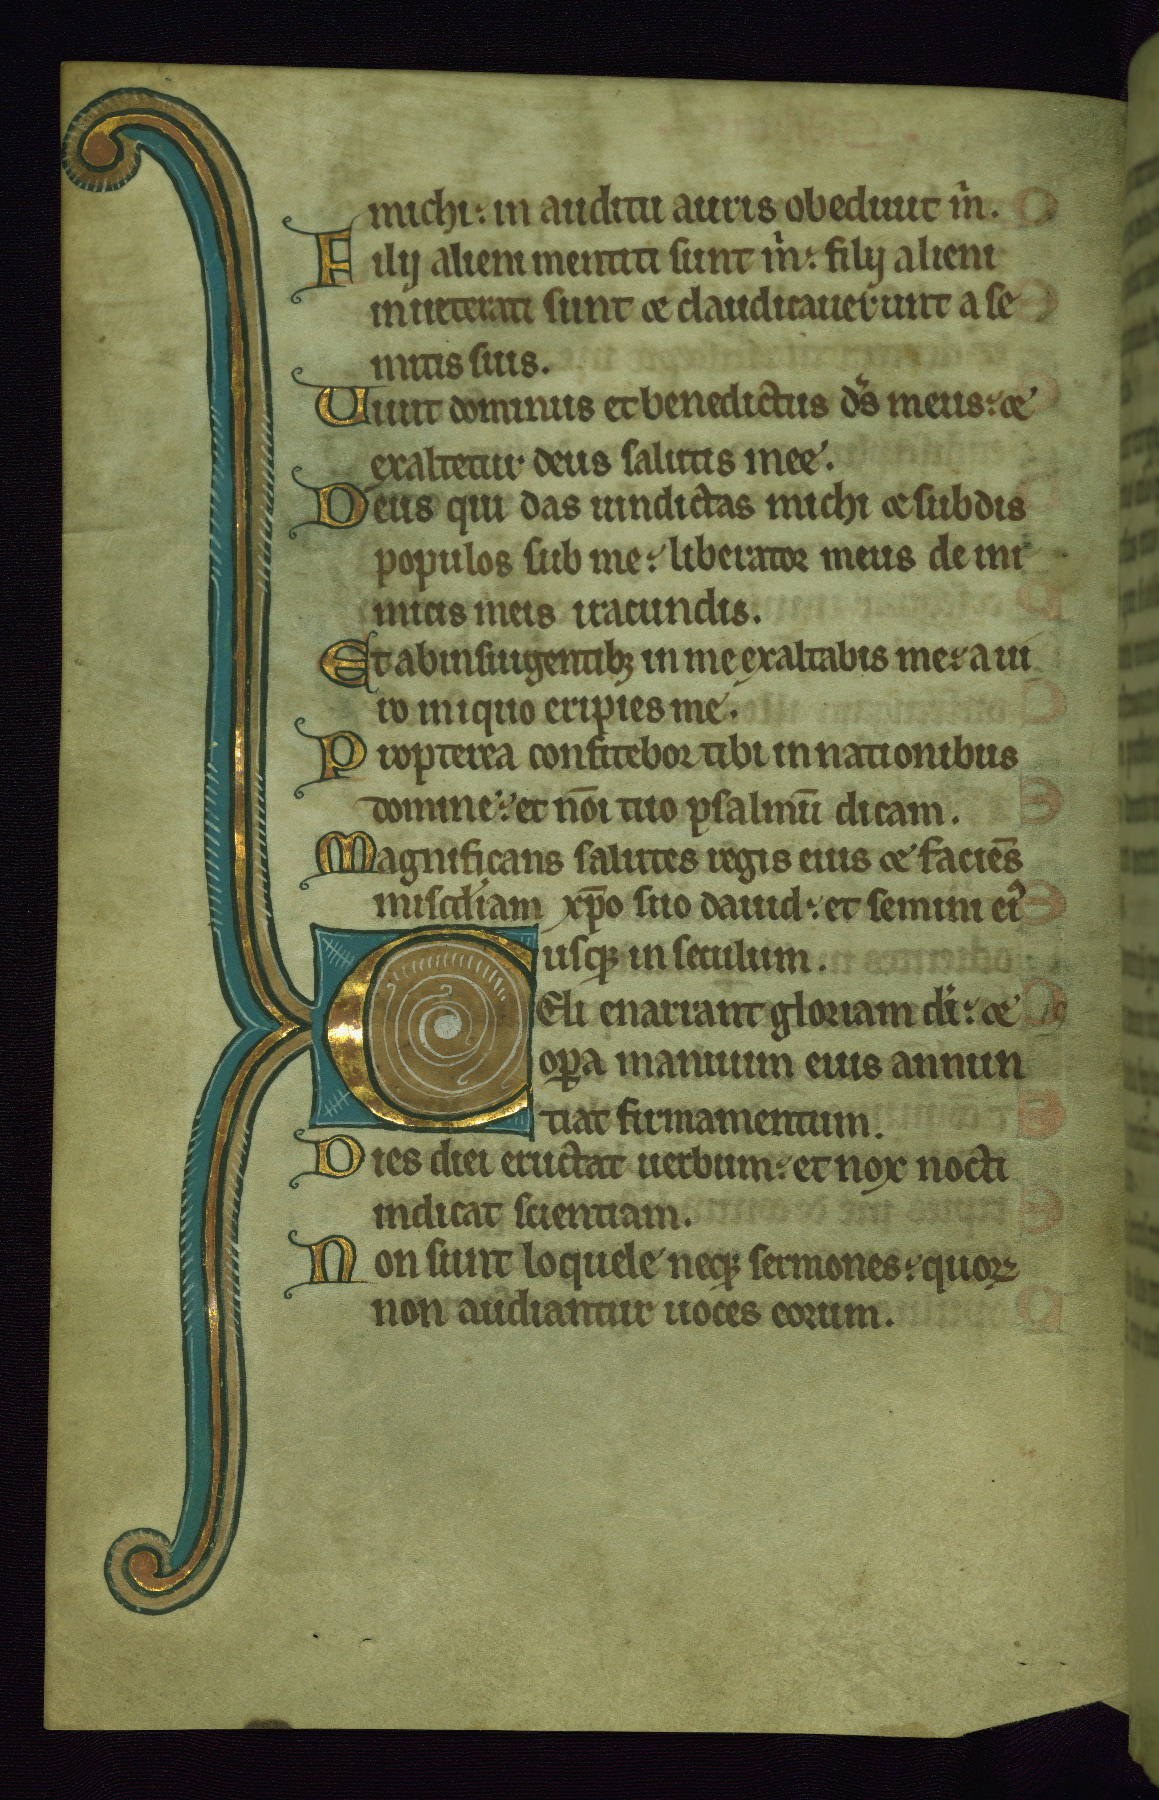 michi: in auditu auris obediuit m̃.
Filij alieni mentiti sunt m̃: filij alieni
inueterati sunt ⁊ claudicauerunt a se
mitis suis.
Viuit dominus et benedictus dš meus: ⁊
exaltetur deus salutis mee.
Deus qui das uindictas michi ⁊ subdis
populos sub me: liberator meus de ini
micis meis iracundis.
Et ab insurgentibꝫ in me exaltabis me: a ui
ro iniquo eripies me.
Propterea confitebor tibi in nationibus
domine: et nōi tuo psalmū dicam.
Magnificans salutes regis eius ⁊ faciēs
miscdiam xp̄o suo dauid: et semini ei᾽
usqꝫ in seculum.
Celi enarrant gloriam di: ⁊
oꝑa manuum eius annun
tiat firmamentum.
Dies diei eructat uerbum: et nox nocti
indicat scientiam.
Non sunt loquele neqꝫ sermones: quoꝝ
non audiantur uoces eorum.